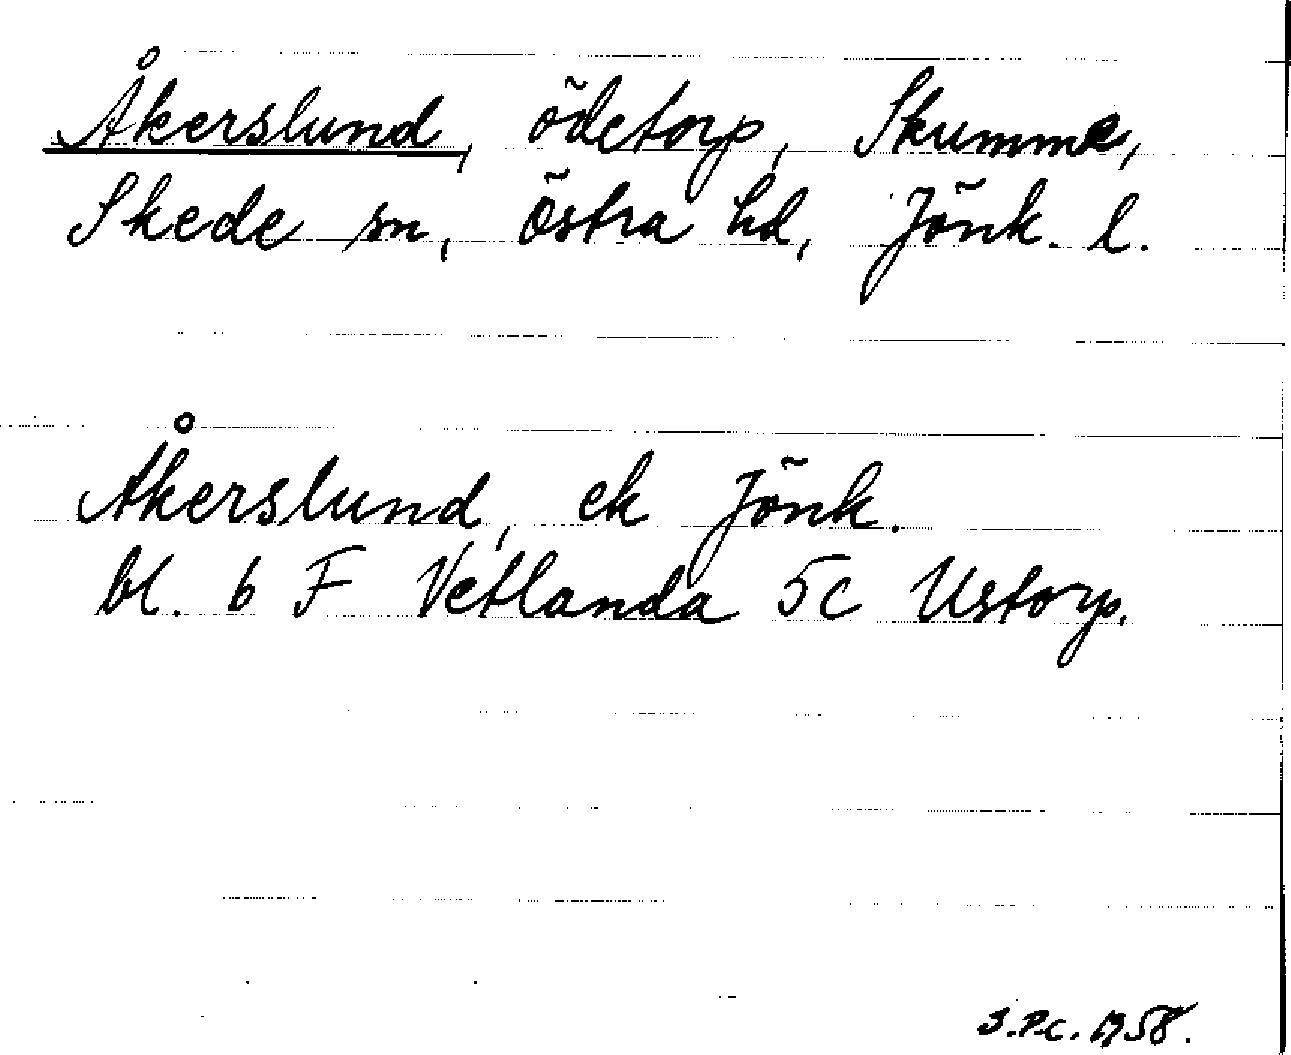 Åkerslund, ödetorp, Skumme,
Skede sn, Östra hd, Jönk. l.
Åkerslund, ek Jönk.
bl. 6 F Vetlanda 5c Ustorp.
J.P.C. 1958.